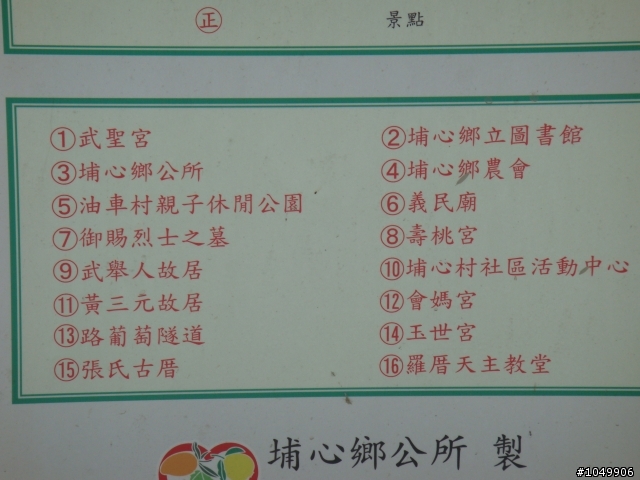 正 景點
①武聖宮 ②埔心鄉立圖書館
③埔心鄉公所 ④埔心鄉農會
⑤油車村親子休閒公園 ⑥義民廟
⑦御賜烈士之墓 ⑧壽桃宮
⑨武舉人故居 ⑩埔心村社區活動中心
⑪黃三元故居 ⑫會媽宮
⑬路葡萄隧道 ⑭玉世宮
⑮張氏古厝 ⑯羅厝天主教堂
埔心鄉公所 製
#1049906